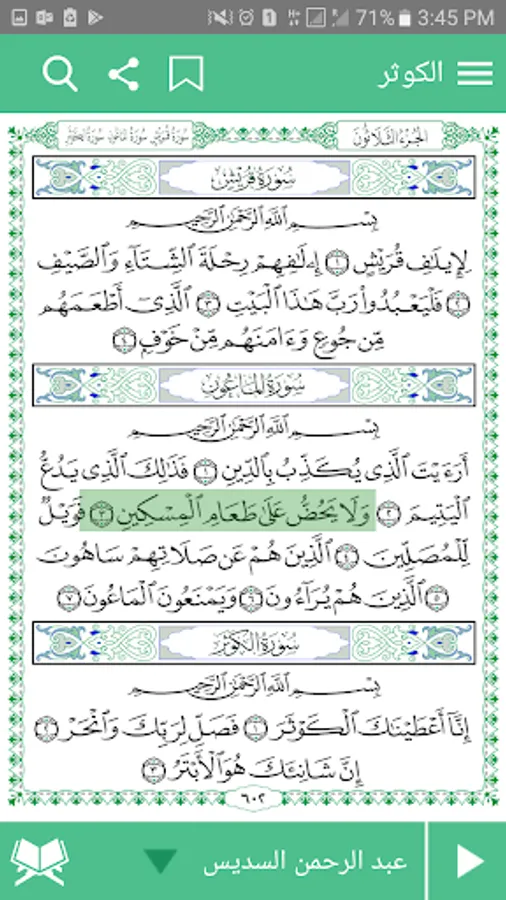 71% 3:45 PM
الكوثر
سورة قريش سورة الماعون سورة الكوثر
الجزء الثلاثون
سُورَةُ قُرَيْشٍ
بِسْمِ ٱللَّهِ ٱلرَّحْمَٰنِ ٱلرَّحِيمِ
لِإِيلَٰفِ قُرَيْشٍ ١ إِۦلَٰفِهِمْ رِحْلَةَ ٱلشِّتَآءِ وَٱلصَّيْفِ
٢ فَلْيَعْبُدُوا۟ رَبَّ هَٰذَا ٱلْبَيْتِ ٣ ٱلَّذِىٓ أَطْعَمَهُم
مِّن جُوعٍ وَءَامَنَهُم مِّنْ خَوْفٍۭ ٤
سُورَةُ المَاعُونِ
بِسْمِ ٱللَّهِ ٱلرَّحْمَٰنِ ٱلرَّحِيمِ
أَرَءَيْتَ ٱلَّذِى يُكَذِّبُ بِٱلدِّينِ ١ فَذَٰلِكَ ٱلَّذِى يَدُعُّ
ٱلْيَتِيمَ ٢ وَلَا يَحُضُّ عَلَىٰ طَعَامِ ٱلْمِسْكِينِ ٣ فَوَيْلٌ
لِّلْمُصَلِّينَ ٤ ٱلَّذِينَ هُمْ عَن صَلَاتِهِمْ سَاهُونَ
٥ ٱلَّذِينَ هُمْ يُرَآءُونَ ٦ وَيَمْنَعُونَ ٱلْمَاعُونَ ٧
سُورَةُ الكَوْثَرِ
بِسْمِ ٱللَّهِ ٱلرَّحْمَٰنِ ٱلرَّحِيمِ
إِنَّآ أَعْطَيْنَٰكَ ٱلْكَوْثَرَ ١ فَصَلِّ لِرَبِّكَ وَٱنْحَرْ ٢
إِنَّ شَانِئَكَ هُوَ ٱلْأَبْتَرُ ٣
٦٠٢
عبد الرحمن السديس